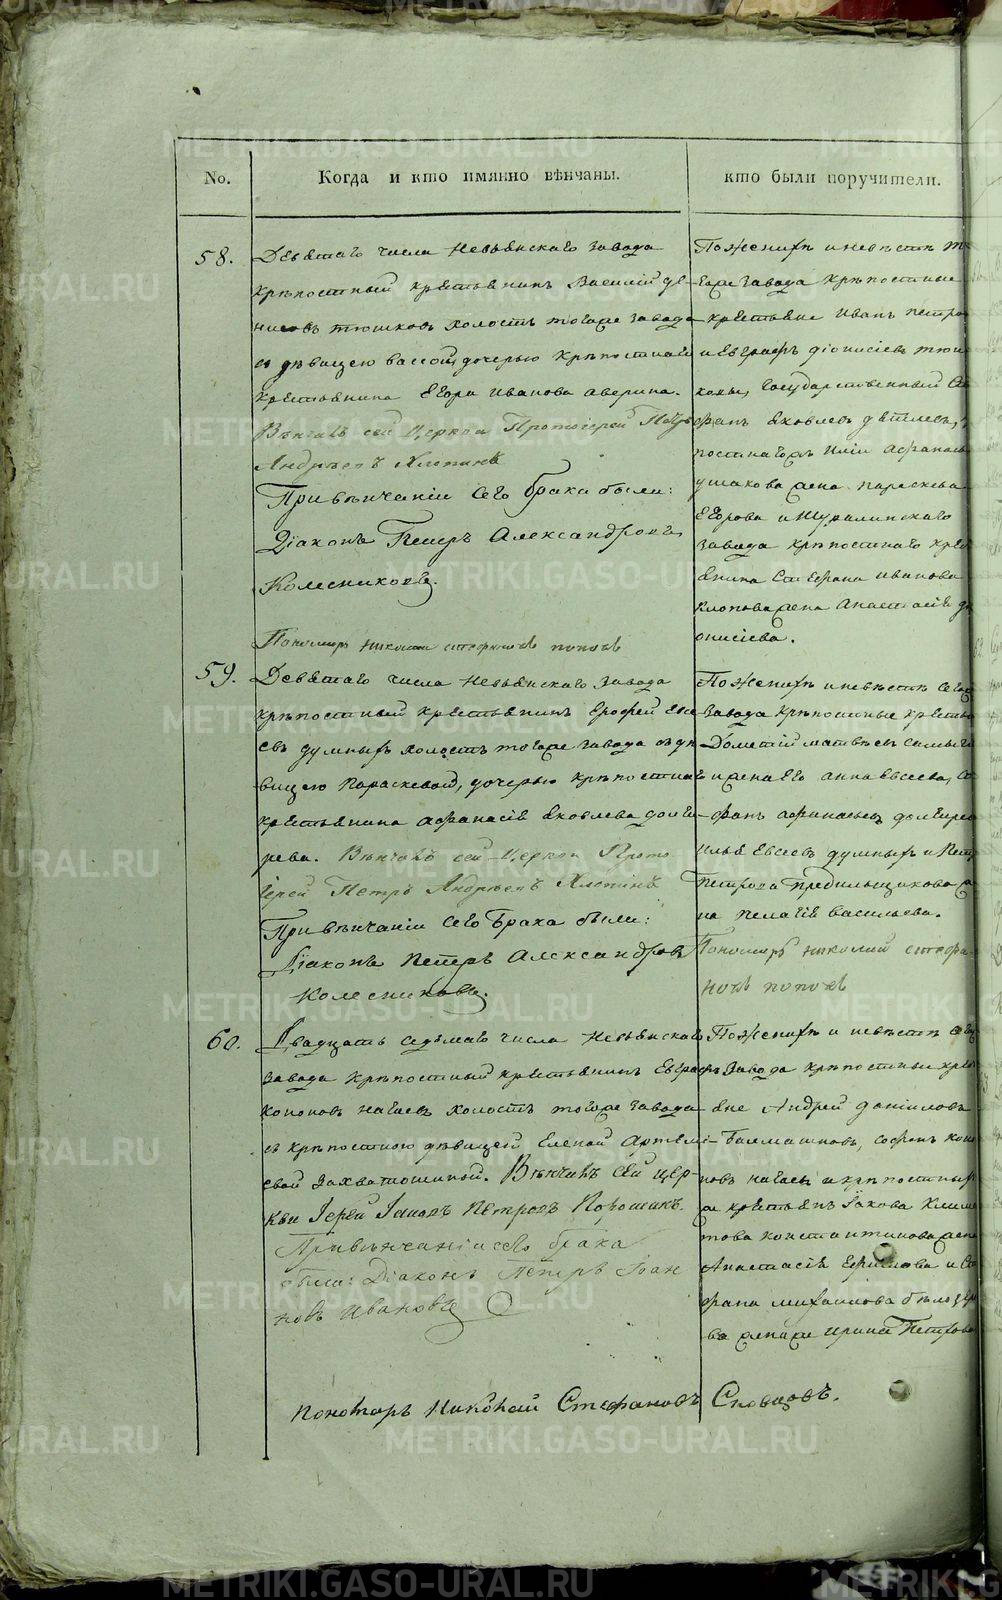 No.
Когда и кто имянно вѣнчаны.
кто были поручители.
58.
Девятаго числа Невьянскаго завода
крѣпостный крестьянинъ Василій Де-
нисовъ Тюшковъ холостъ тогоже завода
съ дѣвицею Вассой, дочерью крѣпостнаго
крестьянина Егора Иванова Аверина.
Вѣнчалъ сей Церкви Протоіерей Петръ
Андрѣевъ Хлопинъ
При вѣнчаніи сего брака были:
Діаконъ Петръ Александровъ
Колесниковъ.
Пономарь Николай Стефановъ Поповъ
По женихѣ и невѣстѣ то-
гоже завода крѣпостные
крестьяне Иванъ Петров
и Евграфъ Діонисіевъ Тюш
ковы, Государственный Сте
фанъ Яковлевъ
Афанасье
Ушакова жена Параскева
Егорова и Шуралинскаго
завода крѣпостнаго крес
янина Стефана Иванова
Клопова жена Анастасія Ді
онисіева.
59.
Девятаго числа Невьянскаго завода
крѣпостный крестьянинъ Ерофей Евсе
евъ Думныхъ холостъ тогоже завода съ дѣ
вицею Параскевой, дочерью крѣпостнаго
крестьянина Афанасія Яковлева Долги-
рева. Вѣнчалъ сей Церкви Прото
іерей Петръ Андрѣевъ Хлопинъ
При вѣнчаніи сего Брака были:
Діаконъ Петръ Александровъ
Колесниковъ.
По женихѣ и невѣстѣ сего
завода крѣпостные крестья
Дометій Матвѣевъ
и жена его Анна Евсеева, Сте
фанъ Афанасьевъ Долгирев
Илья Евсеевъ Думныхъ и Петр
Петрова Предильщикова же
на Пелагія Васильева.
Пономарь Николай Стефа-
новъ Поповъ
60.
Двадцать седьмаго числа Невьянскаго
завода крѣпостный крестьянинъ Евграфъ
Кононовъ Нагаевъ холостъ тогоже завода
съ крѣпостною дѣвицей Еленой Артемі-
евой Захватошиной. Вѣнчалъ сей Цер-
кви Іерей Іаковъ Петровъ Порошинъ.
При вѣнчаніи сего брака
были: Діаконъ Петръ Іоан
новъ Ивановъ
По женихѣ и невѣстѣ сего
завода крѣпостные крес
яне Андрей Даніиловъ
Балмашновъ, Софонъ Коно
новъ Нагаевъ и крѣпостных
же крестьянъ Іакова Климе
това Константинова жена
Анастасія Ефимова и Сте
фана Михаилова Бѣлозеро
ва жена Ирина Петрова
Пономарь Николай Стефановъ Словцовъ.
METRIKI.GASO-URAL.RU